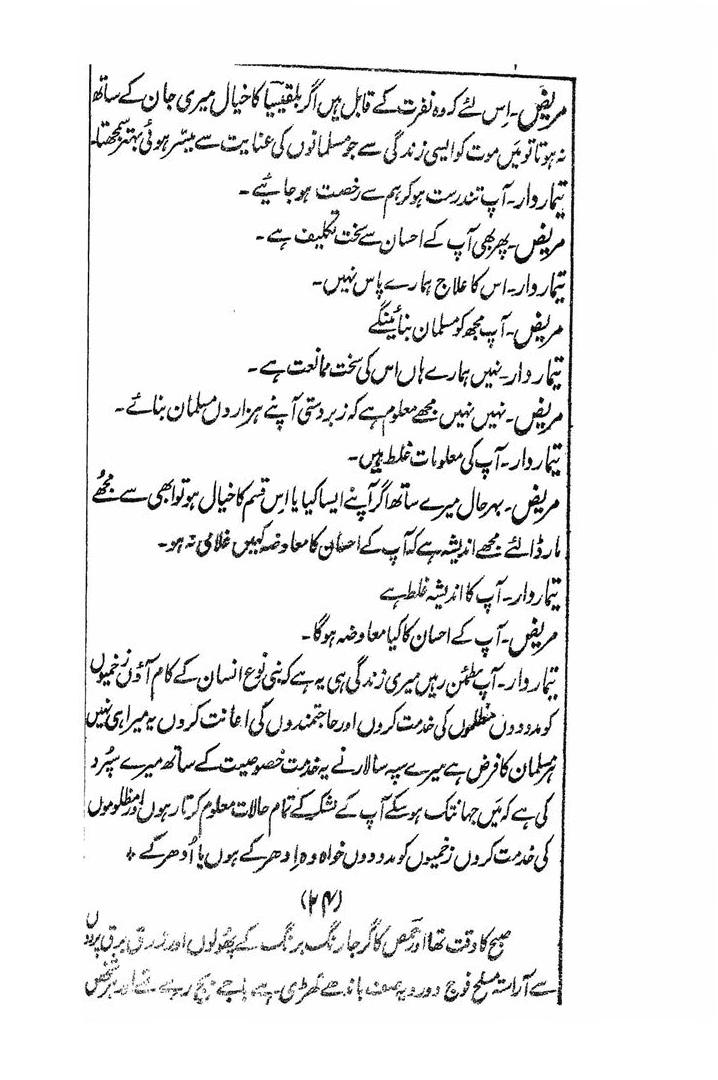 مریض۔ اِس لئے کہ وہ نفرت کے قابل ہیں اگر بلقیسیا کا خیال میری جان کے ساتھ
نہ ہوتا تو میَں موت کو ایسی زندگی سے جو مسلمانوں کی عنایت سے میسّر ہوئی بہتر سمجھتا۔
تیماردار۔ آپ تندرست ہو کر ہم سے رخصت ہو جائیے۔
مریض۔ پھر بھی آپ کے احسان سے سخت تکلیف ہے۔
تیماردار۔ اس کا علاج ہمارے پاس نہیں۔
مریض۔ آپ مجھ کو مسلمان بنائینگے
تیماردار۔ نہیں ہمارے ہاں اس کی سخت ممانعت ہے۔
مریض۔ نہیں نہیں مجھے معلوم ہے کہ زبردستی آپنے ہزاروں مسلمان بنائے۔
تیماردار۔ آپ کی معلومات غلط ہیں۔
مریض۔ بہرحال میرے ساتھ اگر آپنے ایسا کیا یا اِس قسم کا خیال ہو تو ابھی سے مجھے
مار ڈالئے مجھے اندیشہ ہے کہ آپ کے احسان کا معاوضہ کہیں غلامی نہ ہو۔
تیماردار۔ آپ کا اندیشہ غلط ہے
مریض۔ آپ کے احسان کا کیا معاوضہ ہوگا۔
تیماردار۔ آپ مطمئن رہیں میری زندگی ہی یہ ہے کہ بنی نوع انسان کے کام آؤں زخمیوں
کو مدد دوں مظلوموں کی خدمت کروں اور حاجتمندوں کی اعانت کروں یہ میرا ہی نہیں
ہر مسلمان کا فرض ہے میرے سپہ سالار نے یہ خدمت خصوصیت کے ساتھ میرے سپُرد
کی ہے کہ میَں جہانتک ہو سکے آپ کے لشکر کے تمام حالات معلوم کرتا رہوں اور مظلوموں
کی خدمت کروں زخمیوں کو مدد دوں خواہ وہ اِدھر کے ہوں یا اُدھر کے ٭
(۲۴)
صبح کا وقت تھا اور حمص کا گرجا رنگ برنگ کے پھولوں اور زرق برق پردوں
سے آراستہ مسلح فوج دورویہ صف باندھے کھڑی ہے باجے بج رہے تھے اور ہر شخص